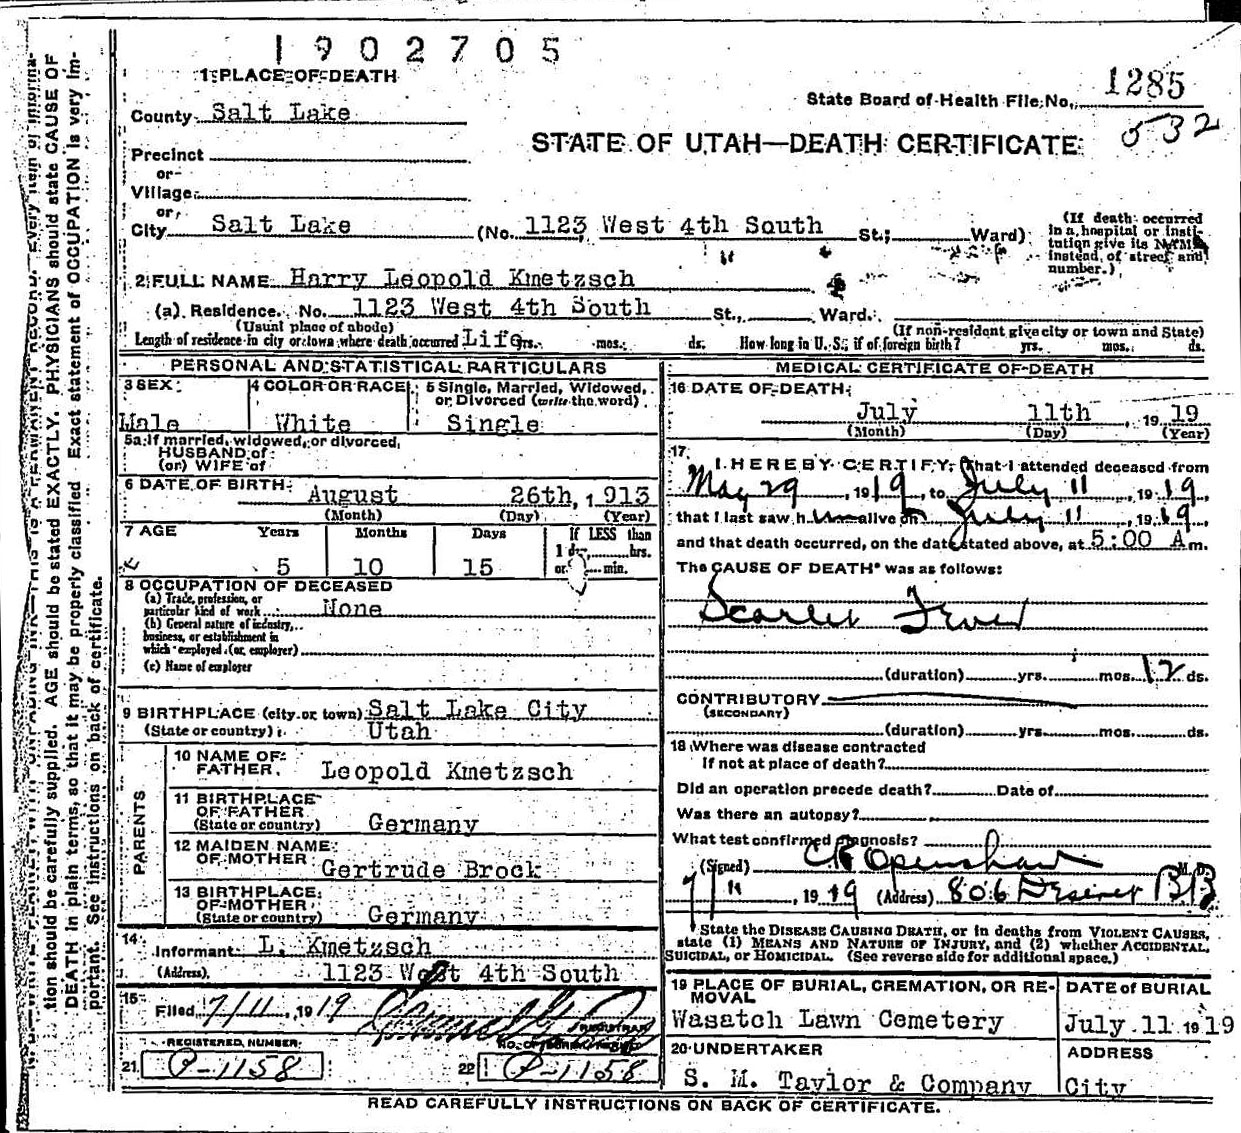 1902705
1 PLACE OF DEATH
State Board of Health File No. 1285
County Salt Lake
532
STATE OF UTAH—DEATH CERTIFICATE
Precinct
or
Village
or
City Salt Lake (No. 1123 West 4th South St.; Ward)
(If death occurred in a hospital or institution give its NAME instead of street and number.)
2 FULL NAME Harry Leopold Kmetzsch
(a) Residence. No. 1123 West 4th South St., Ward.
(Usual place of abode) (If non-resident give city or town and State)
Length of residence in city or town where death occurred Life yrs. mos. ds. How long in U. S., if of foreign birth? yrs. mos. ds.
PERSONAL AND STATISTICAL PARTICULARS
3 SEX 4 COLOR OR RACE 5 Single, Married, Widowed, or Divorced (write the word)
Male White Single
5a If married, widowed, or divorced,
HUSBAND of
(or) WIFE of
6 DATE OF BIRTH August 26th, 1913
(Month) (Day) (Year)
7 AGE Years Months Days If LESS than
1 day, hrs.
5 10 15 or min.
8 OCCUPATION OF DECEASED
(a) Trade, profession, or
particular kind of work None
(b) General nature of industry,
business, or establishment in
which employed (or employer)
(c) Name of employer
9 BIRTHPLACE (city or town) Salt Lake City
(State or country) Utah
PARENTS
10 NAME OF
FATHER Leopold Kmetzsch
11 BIRTHPLACE
OF FATHER
(State or country) Germany
12 MAIDEN NAME
OF MOTHER Gertrude Brock
13 BIRTHPLACE
OF MOTHER
(State or country) Germany
14 Informant L. Kmetzsch
(Address) 1123 West 4th South
15 Filed 7/11, 1919
REGISTRAR
REGISTERED NUMBER
21 P-1158 22 P-1158
MEDICAL CERTIFICATE OF DEATH
16 DATE OF DEATH
July 11th 1919
(Month) (Day) (Year)
17
I HEREBY CERTIFY, that I attended deceased from
May 29, 1919, to July 11, 1919,
that I last saw him alive on July 11, 1919,
and that death occurred, on the date stated above, at 5:00 A m.
The CAUSE OF DEATH* was as follows:
Scarlet Fever
(duration) yrs. mos. 12 ds.
CONTRIBUTORY
(SECONDARY)
(duration) yrs. mos. ds.
18 Where was disease contracted
If not at place of death?
Did an operation precede death? Date of
Was there an autopsy?
What test confirmed diagnosis?
(Signed) Openshaw M. D.
7/11, 1919 (Address) 806 Deseret
State the DISEASE CAUSING DEATH, or in deaths from VIOLENT CAUSES,
state (1) MEANS AND NATURE OF INJURY, and (2) whether ACCIDENTAL,
SUICIDAL, or HOMICIDAL. (See reverse side for additional space.)
19 PLACE OF BURIAL, CREMATION, OR REMOVAL DATE of BURIAL
Wasatch Lawn Cemetery July 11 1919
20 UNDERTAKER ADDRESS
S. M. Taylor & Company City
READ CAREFULLY INSTRUCTIONS ON BACK OF CERTIFICATE.
tion should be carefully supplied. AGE should be stated EXACTLY. PHYSICIANS should state CAUSE OF
DEATH in plain terms, so that it may be properly classified. Exact statement of OCCUPATION is very im-
portant. See instructions on back of certificate.